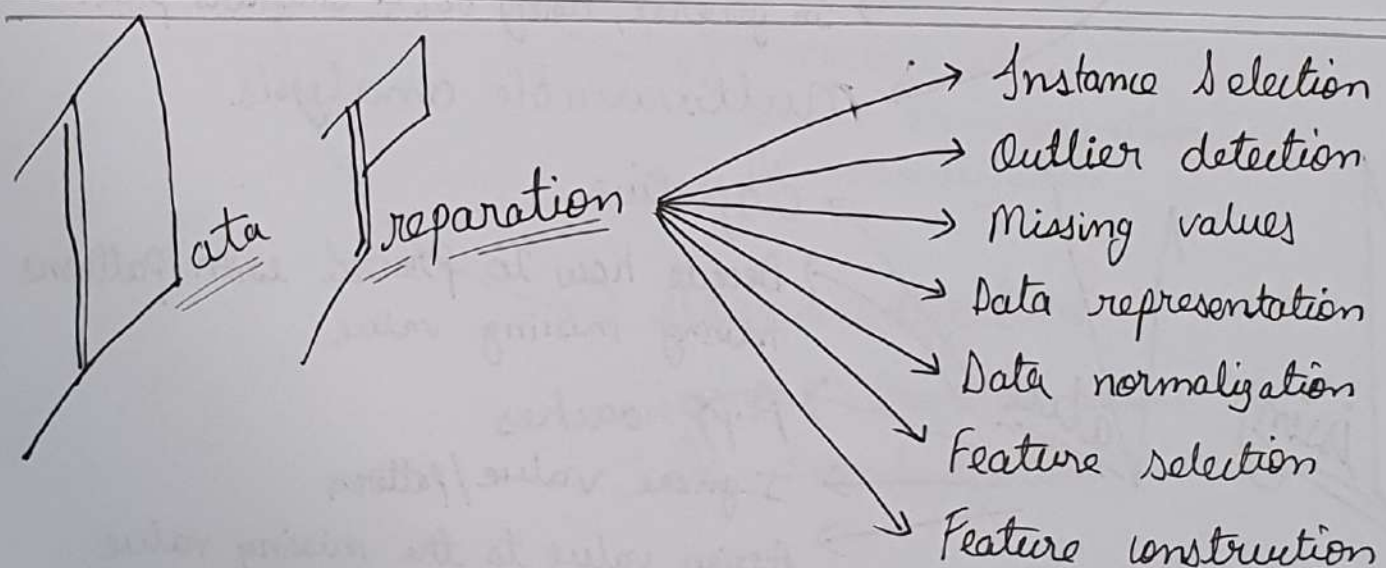 Data Preparation
Instance Selection
Outlier detection
Missing values
Data representation
Data normalization
Feature selection
Feature construction